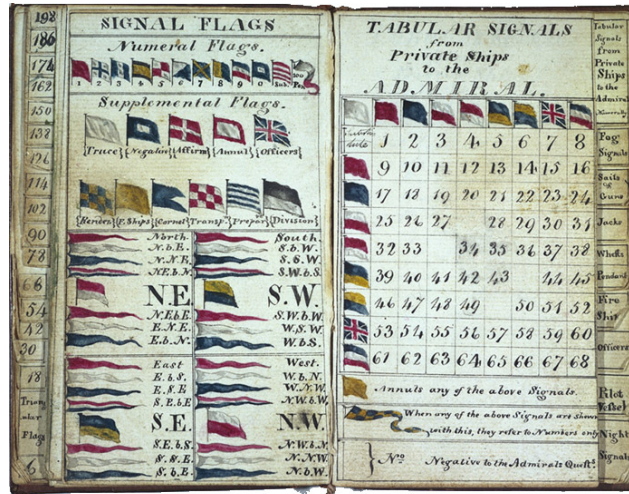 198
186
174
162
150
138
126
114
102
90
78
66
54
42
30
18
Flags
6
SIGNAL FLAGS
Numeral Flags.
1 2 3 4 5 6 7 8 9 0 Sub.
Supplemental Flags.
Truce Negative Affirm Annul Officers
Rendez P. Ships Cornet Transp. Prepar Division
North. South.
N.b.E. S.b.W.
N.N.E. S.S.W.
NE.b.N. S.W.b.S.
N.E. S.W.
N.E.b.E. S.W.b.W.
E.N.E. W.S.W.
E.b.N. W.b.S.
East West.
E.b.S. W.b.N.
E.S.E W.N.W.
S.E.b.E N.W.b.W.
S.E. N.W.
S.E.b.S. N.W.b.N.
S.S.E. N.N.W.
S.b.E. N.b.W.
TABULAR SIGNALS
from
Private Ships
to the
ADMIRAL.
1 2 3 4 5 6 7 8
9 10 11 12 13 14 15 16
17 18 19 20 21 22 23 24
25 26 27 28 29 30 31
32 33 34 35 36 37 38
39 40 41 42 43 44 45
46 47 48 49 50 51 52
53 54 55 56 57 58 59 60
61 62 63 64 65 66 67 68
Annuls any of the above Signals.
When any of the above Signals are shewn
with this, they refer to Numbers only
No. Negative to the Admirals Quest.
Tabular
Signals
from
Private
Ships
to the
Admiral
Fog
Signals
Sails
&
Guns
Jacks
Whefts
Pendants
Fire
Ship
Officers
Pilot
Vessel
Night
Signals